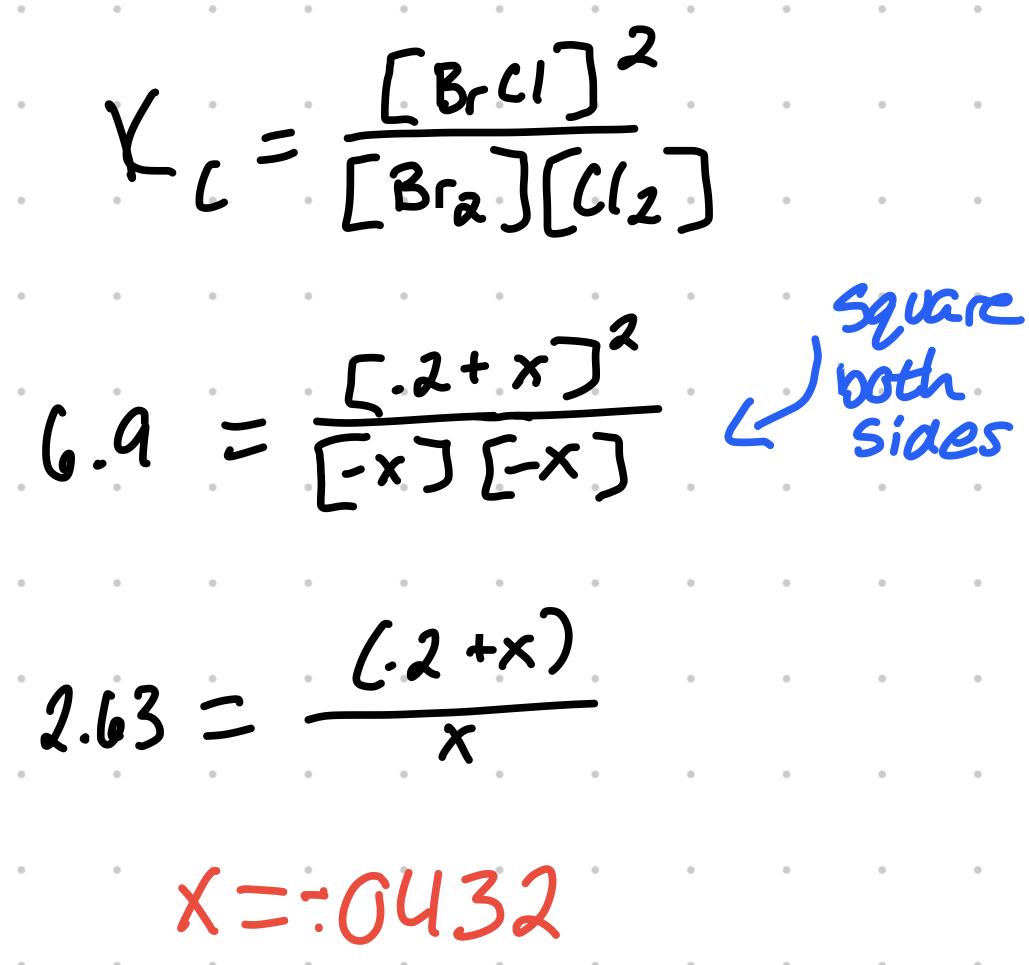 K_c = [BrCl]^2 / [Br_2][Cl_2]
6.9 = [.2 + x]^2 / [-x][-x]
square
both
sides
2.63 = (.2 + x) / x
x = -.0432